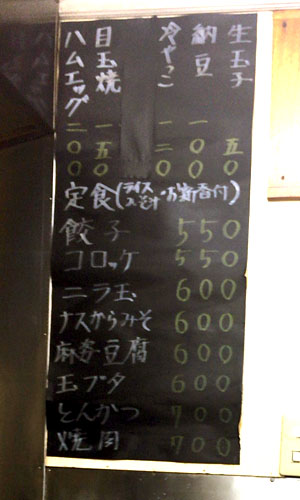 生玉子 五〇
納豆 一〇〇
冷やっこ 一二〇
目玉焼 一五〇
ハムエッグ 二〇〇
定食(ライス みそ汁・お新香付)
餃子 550
コロッケ 550
ニラ玉 600
ナスからみそ 600
麻婆豆腐 600
玉ブタ 600
とんかつ 700
焼肉 700